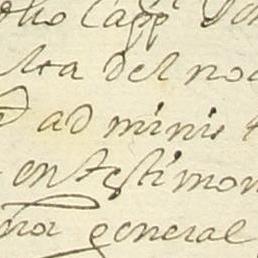 dho Capp
lta del no
ad minis
en testimon
nor general